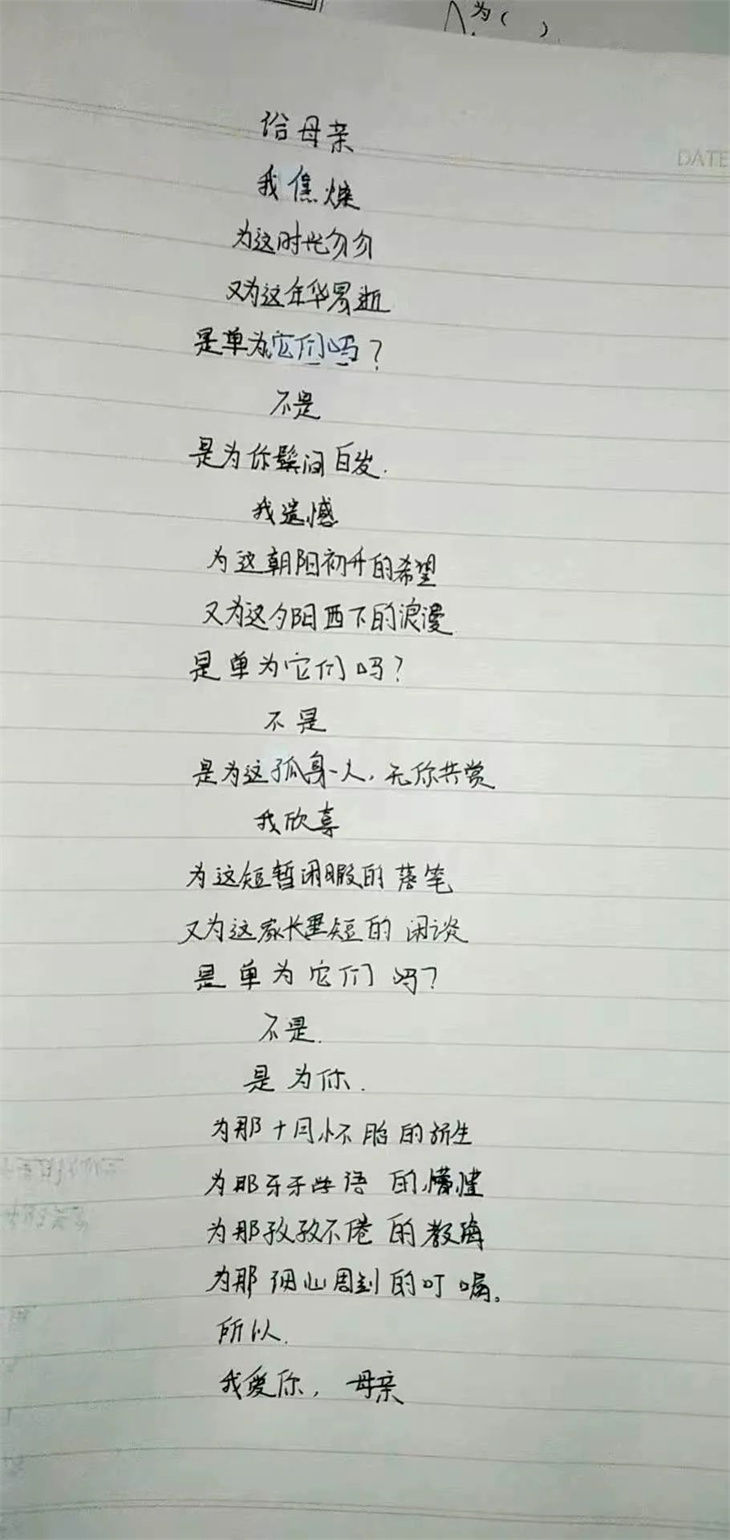 为( )
DATE
给母亲
我焦焕
为这时光匆匆
又为这年华易逝
是单为它们吗?
不是
是为你鬓间白发.
我遗憾
为这朝阳初升的希望
又为这夕阳西下的浪漫
是单为它们吗?
不是
是为这孤身一人,无你共赏
我欣喜
为这短暂闲暇的落笔
又为这家长里短的闲谈
是单为它们吗?
不是.
是为你.
为那十月怀胎的新生
为那牙牙学语的懵懂
为那孜孜不倦的教诲
为那细心周到的叮嘱。
所以.
我爱你,母亲